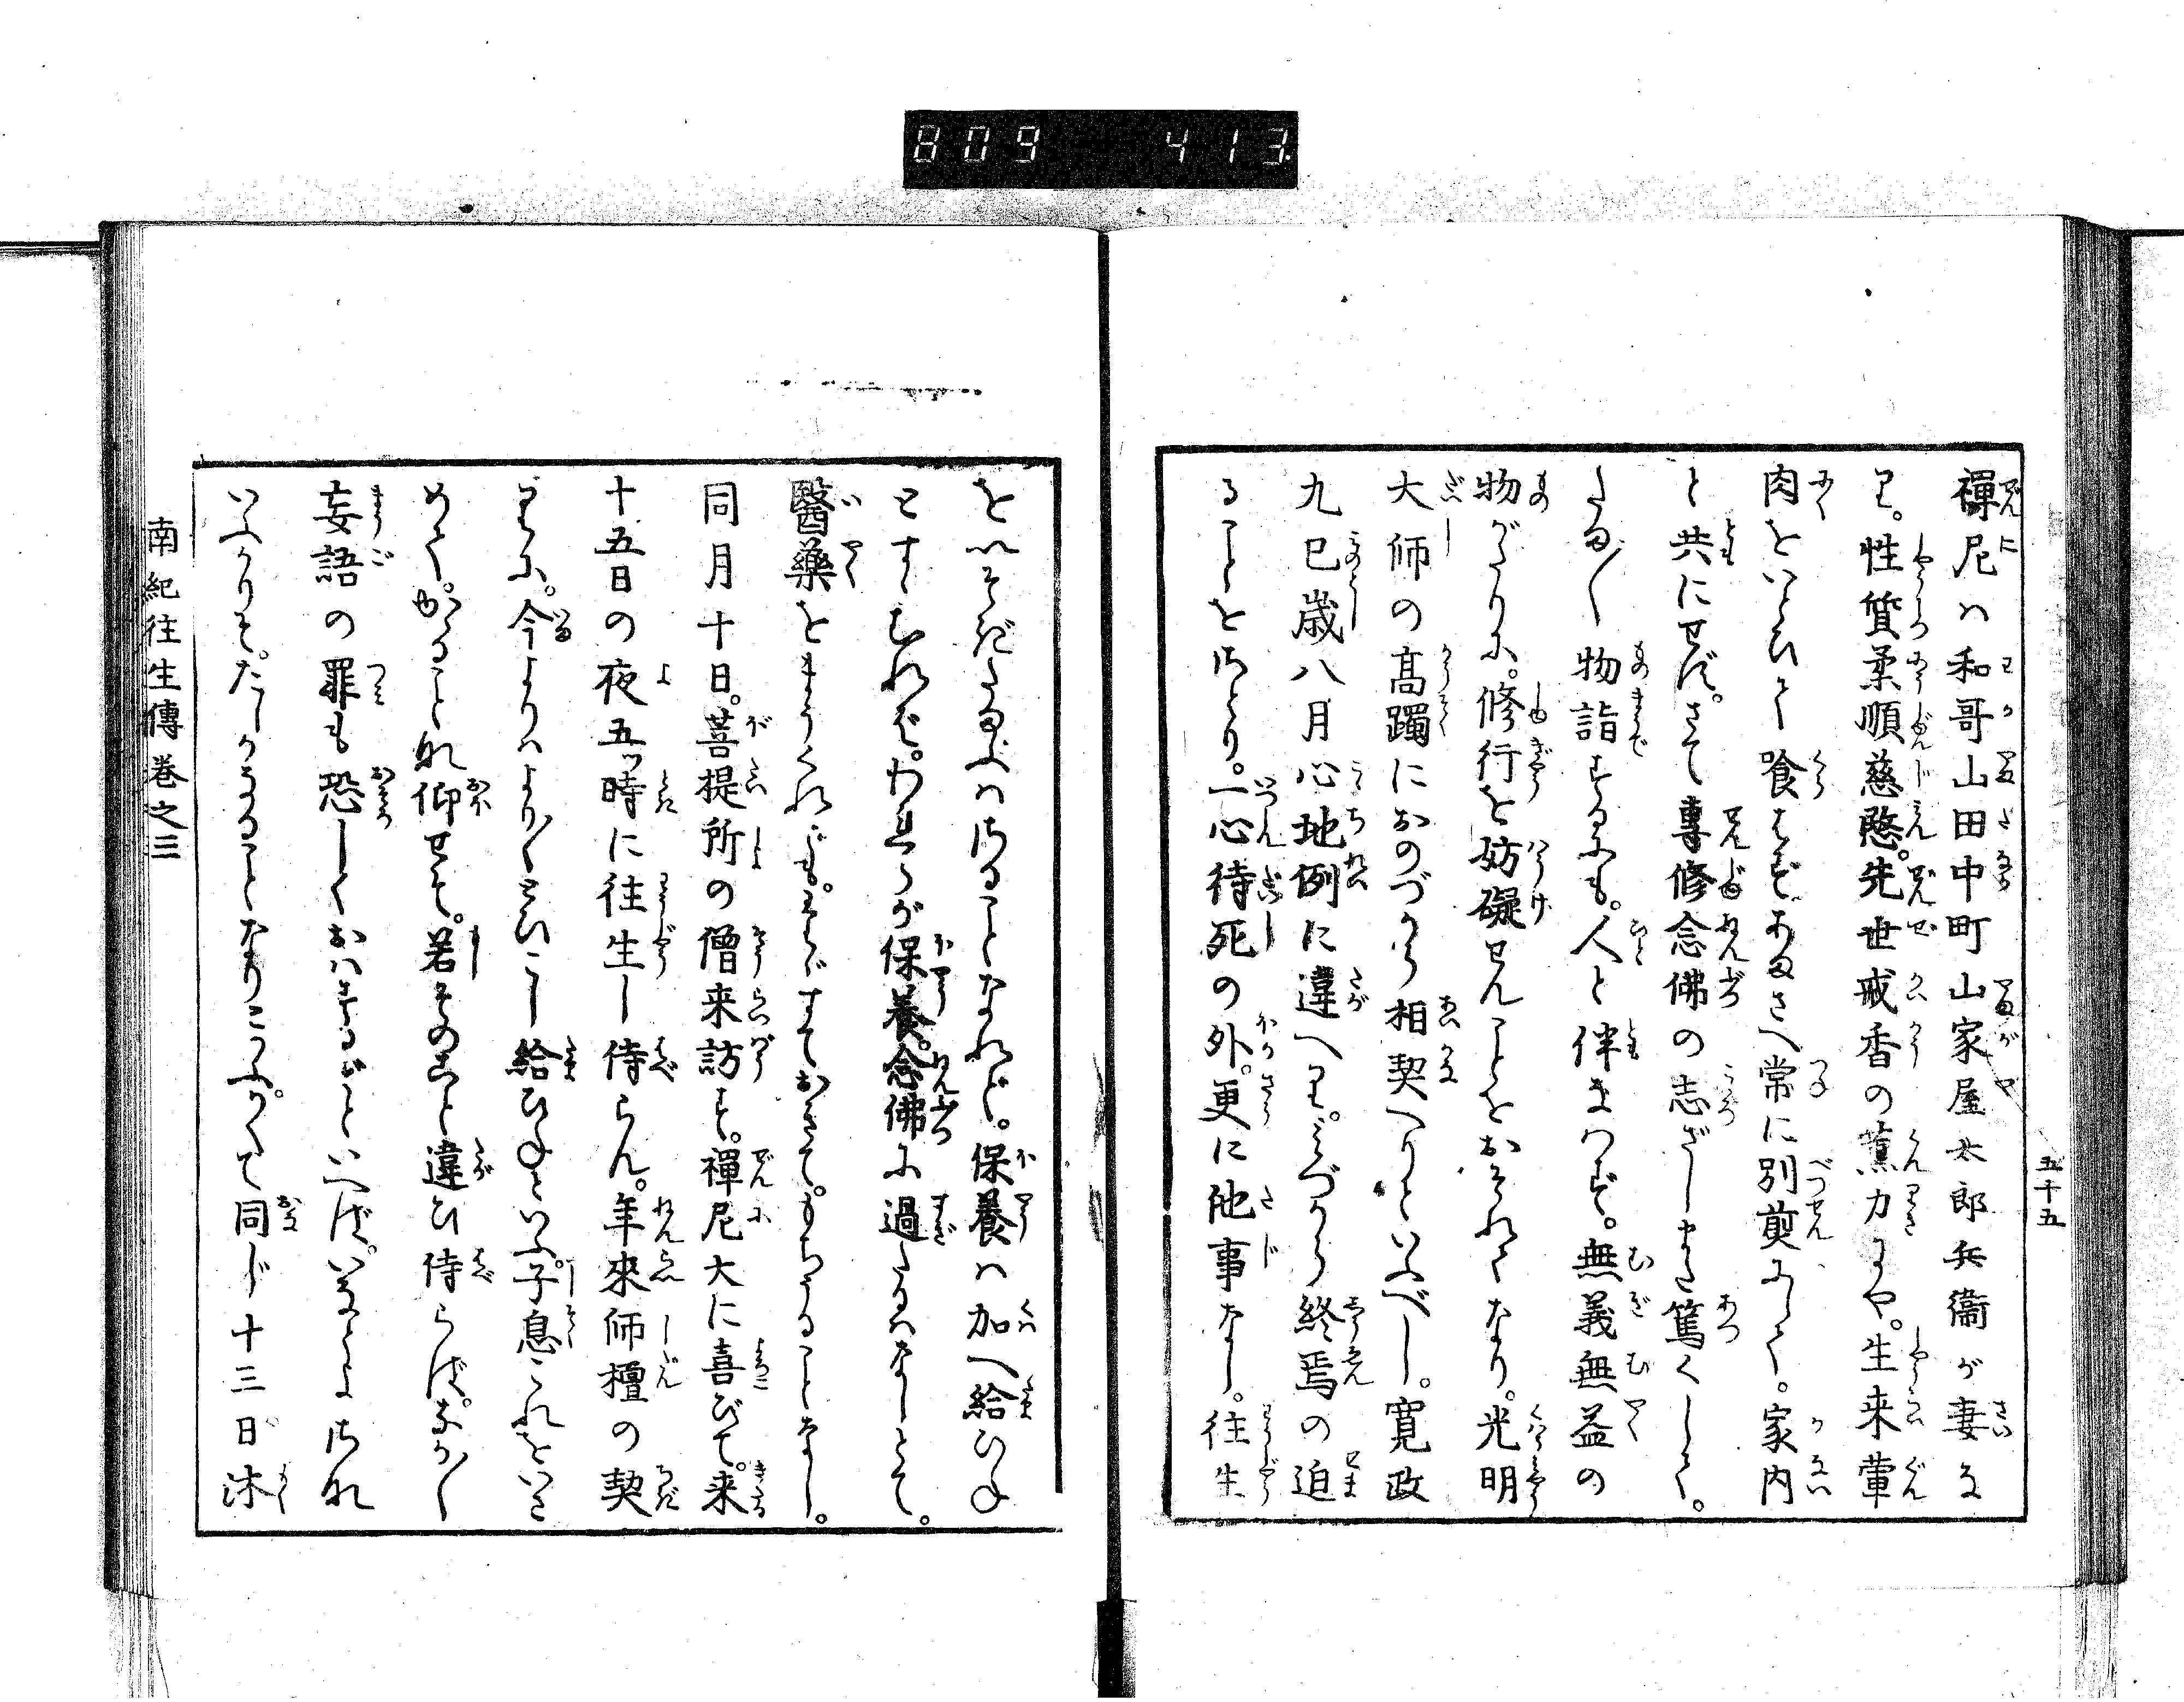 809 413
五十五
禪尼ハ和哥山田中町山家屋太郎兵衞が妻な
り。性質柔順慈愍。先世戒香の薫力にや。生来葷
肉をいとひて喰はずあまさへ常に別煎にして。家内
と共にせず。さて專修念佛の志ざしまた篤くして。
たま〳〵物詣するにも。人と伴はず。無義無益の
物がたりに。修行を妨礙せんことをおそれてなり。光明
大師の高躅におのづから相契へりといふべし。寛政
九巳歳八月心地例に違へり。みづから終焉の迫
ることをさとり。一心待死の外。更に他事なし。往生
をいそぎたまふハさることなれど。保養ハ加へ給ひね
とすゝむれば。わきらが保養。念佛に過たるハなしとて。
醫藥をまうくれども。そらすておきて。もちうることなし。
同月十日。菩提所の僧来訪す。禪尼大に喜びて。来
十五日の夜五ッ時に往生し侍らん。年來師檀の契
りに。今よりハより〳〵とひこし給ひねといふ。子息これをいさ
めて。かゝることな仰せそ。若そのこと違ひ侍らば。なか〳〵
妄語の罪も恐しくおハするぞといへば。いなとよさな
いふかりそ。たしかなることなりとこたふ。かくて同じ十三日沐
南紀往生傳巻之三